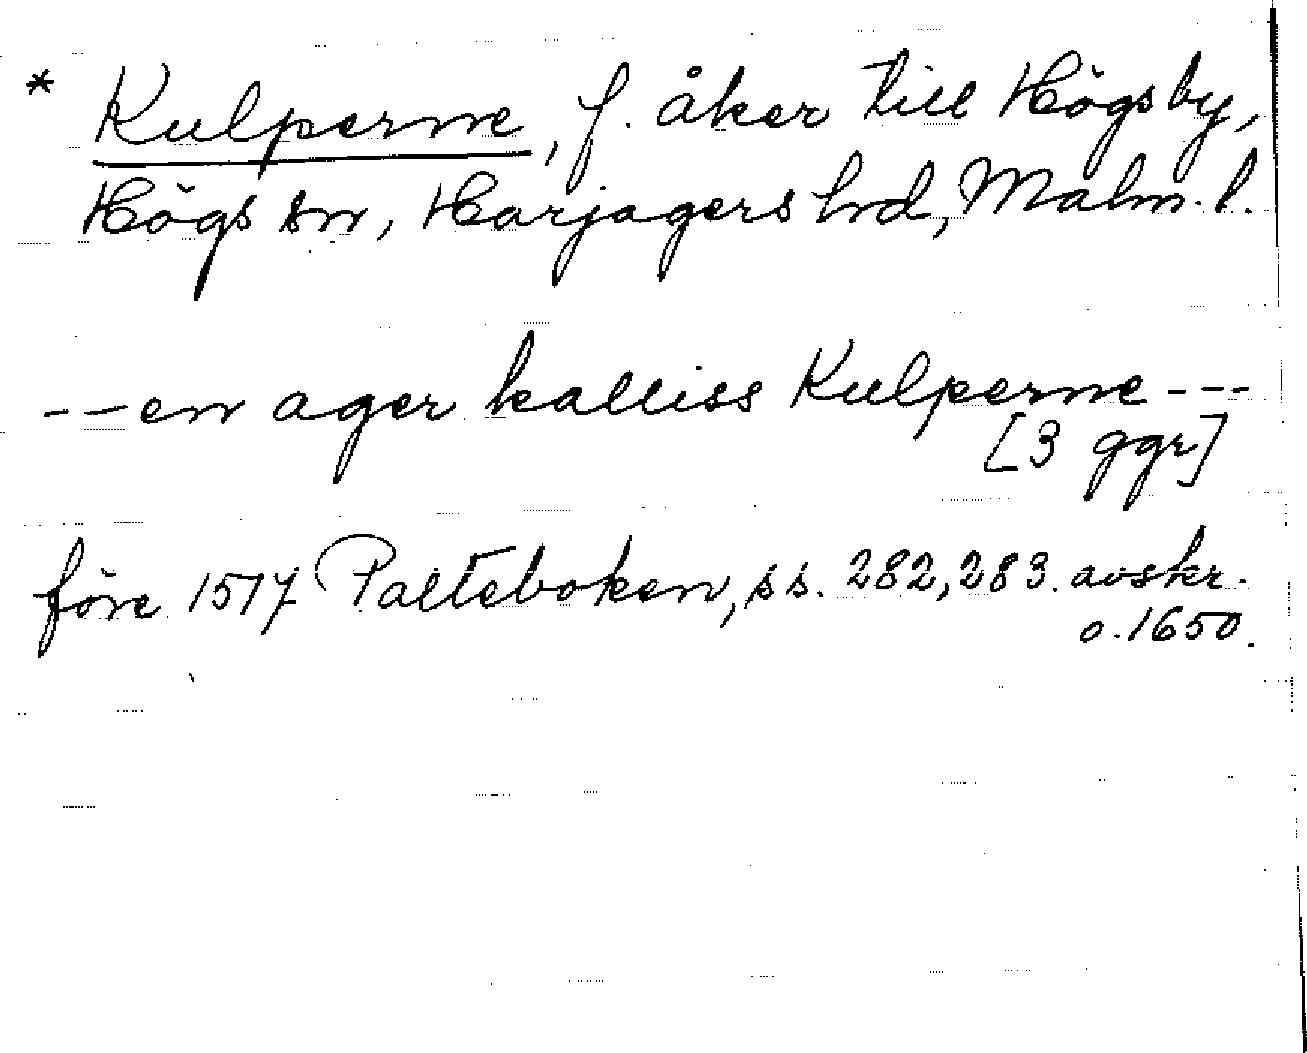 * Kulperne, f. åker till Högsby,
Högs sn, Harjagers hd, Malm. l.
--en ager kalliss Kulperne---
[3 ggr]
före 1517 Palteboken, ss. 282, 283. avskr.
o. 1650.